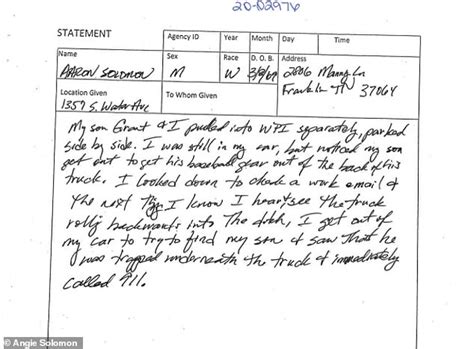 20-02976
STATEMENT
Agency ID
Year
Month
Day
Time
Name
AARON SOLOMON
Sex
M
Race
W
D. O. B.
Address
Franklin TN 37064
Location Given
1357 S. Water Ave
To Whom Given
My son Grant & I pulled into WPI separately, parked
side by side. I was still in my car, but noticed my son
get out to get his baseball gear out of the back of his
truck. I looked down to check a work email &
the next thing I know I hear/see the truck
rolling backwards into the ditch, I get out of
my car to try to find my son & saw that he
was trapped underneath the truck & immediately
called 911.
© Angie Solomon